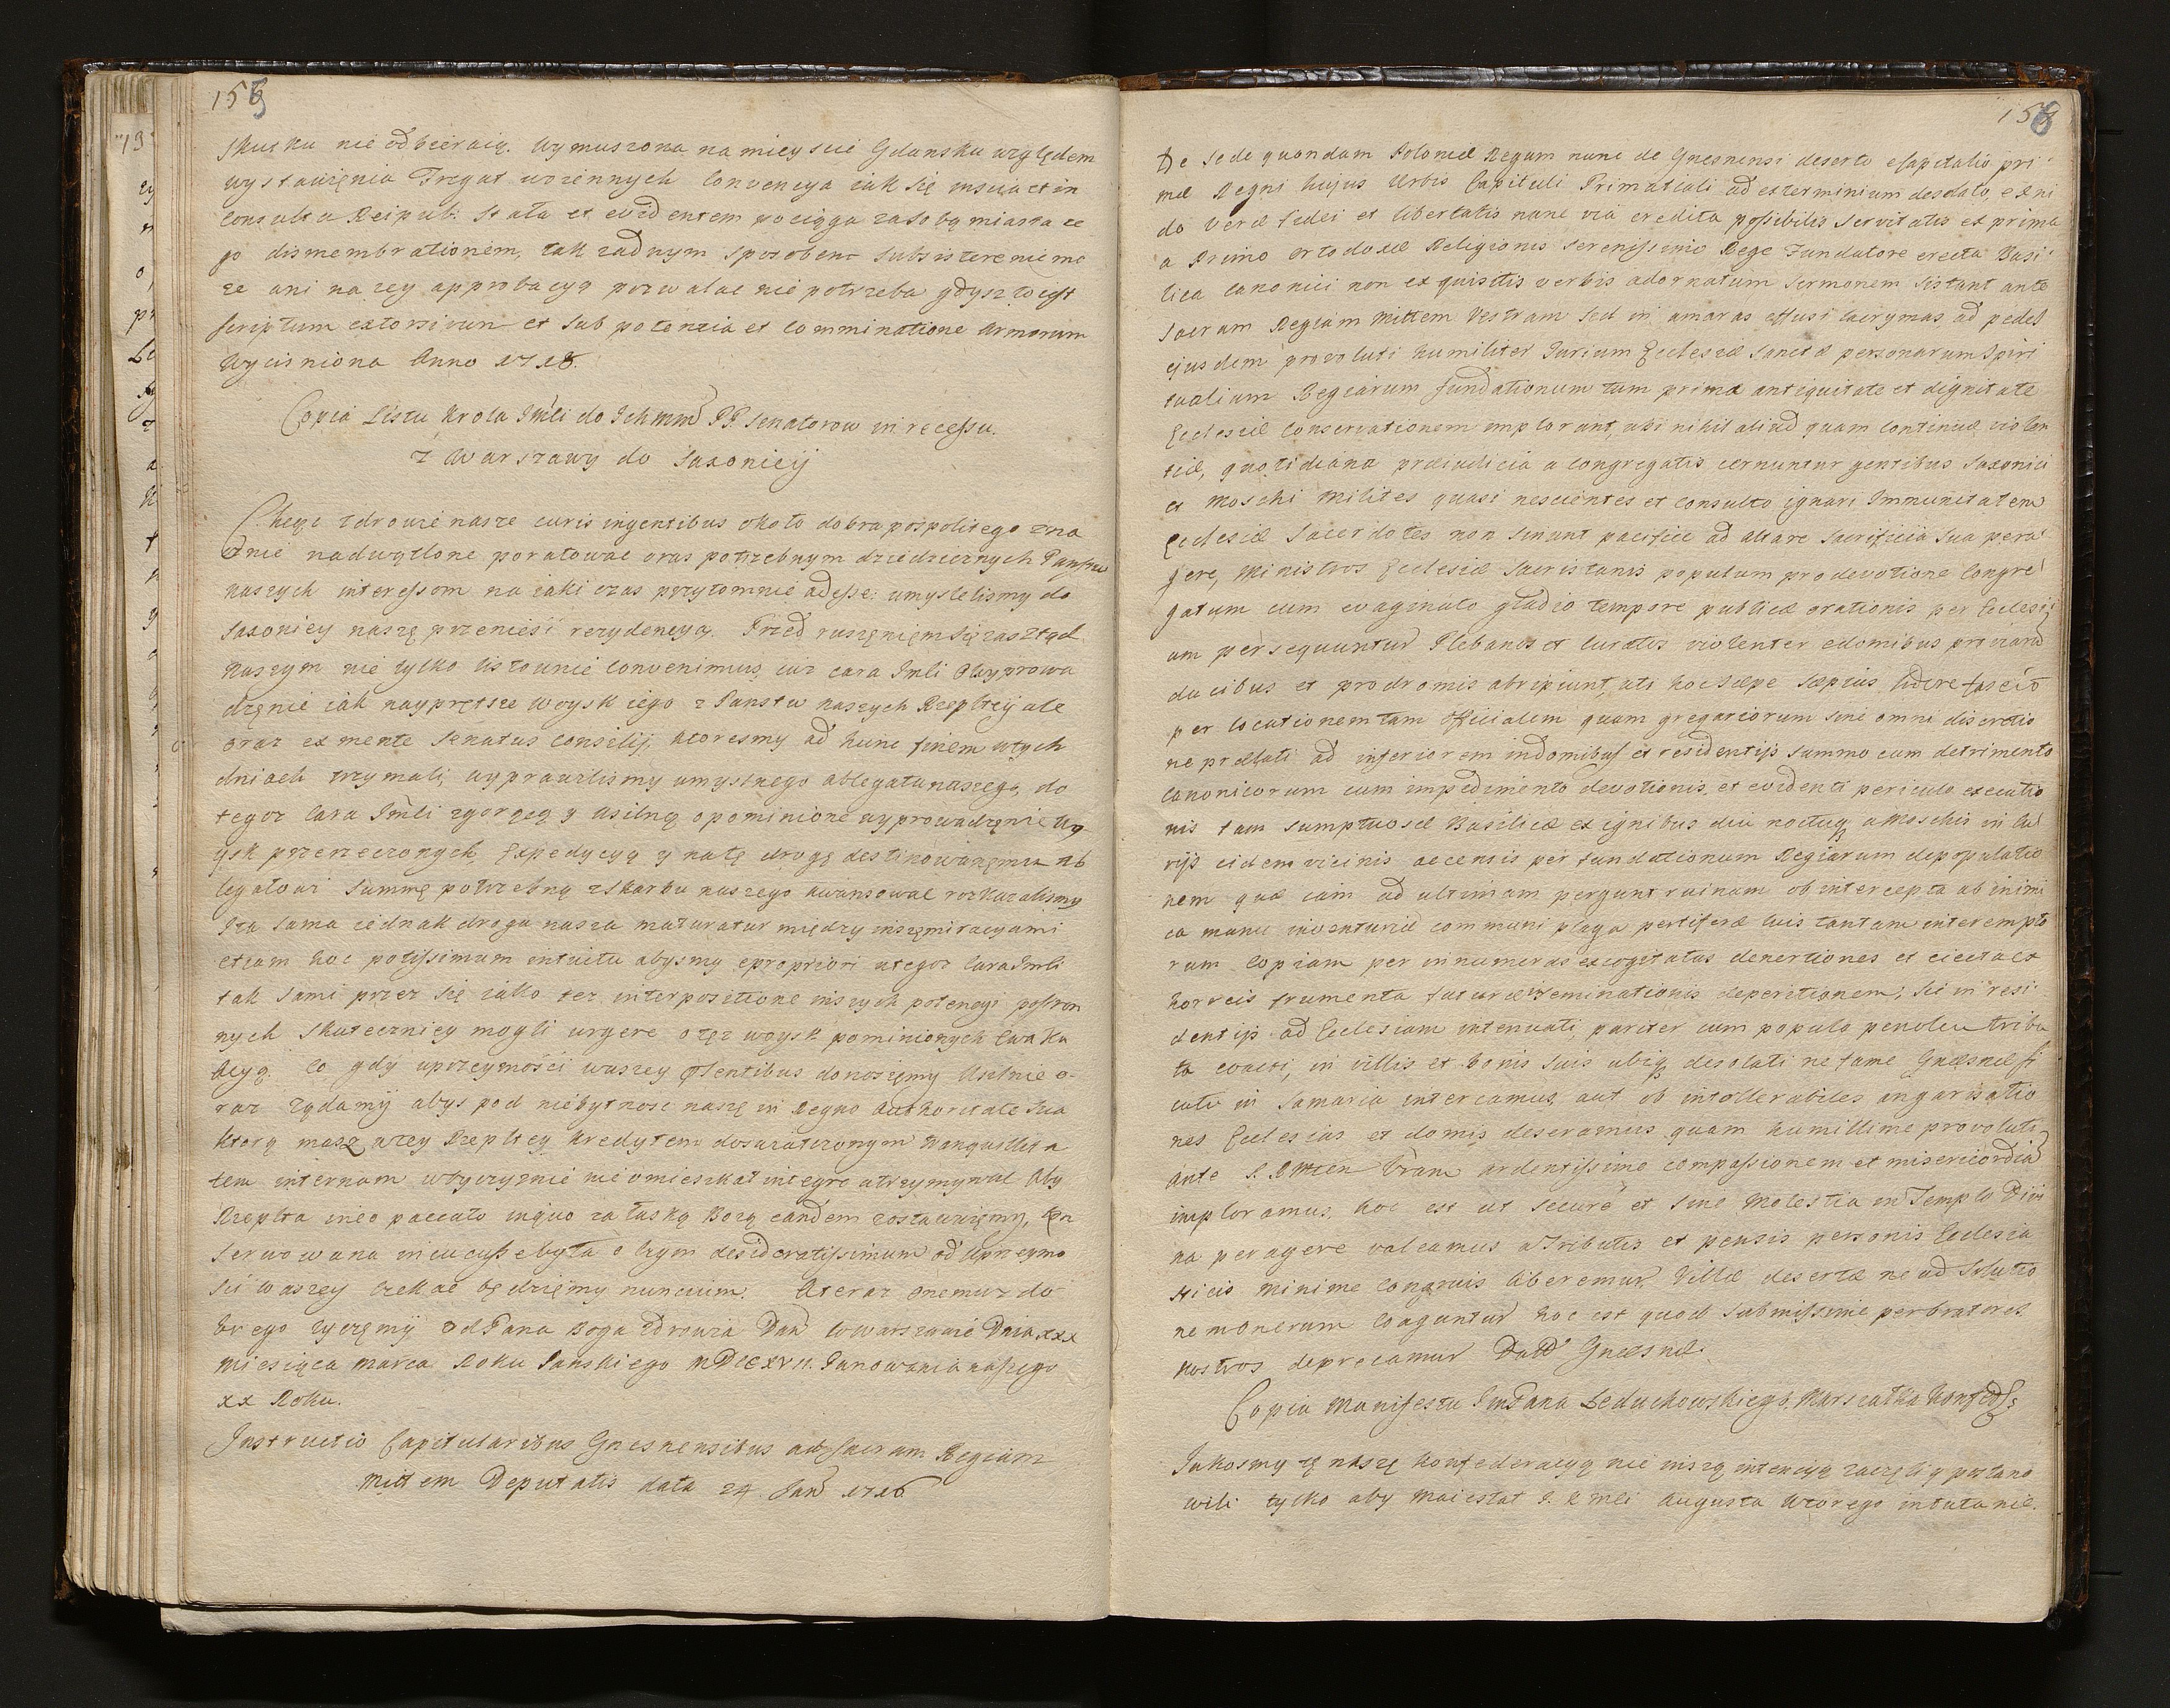 155
skutku nie odbieraią. Wymuszona na mieyscie Gdansku względem
wystawięnia Fregat woiennych Convencya iak się insua et in
consulta Reipub: stała et evidentem pociąga za sobą miasta te
go dismembrationem, tak zadnym sposobem subsistere nie mo
ze ani na zey approbacyą pozwalac nie potrzeba gdysz to iest
scriptum extorsivum et sub potentia et comminatione Armorum
Wycisniona Anno 1718.
Copia Listu Krola Jmci do Ichmm PP. Senatorow in recessu.
z Warszawy do Saxonicij
Chcąc zdrowie nasze curis ingentibus około dobra pospolitego zna
cznie nadwątlone poratowac oraz potrzebnym dziedzicznych Panstw
naszych interessom na iaki czas przytomnie adesse: umyslelismy do
Saxoniey naszę przeniesi rezydencyą. Przed ruszęnięm się za sztąd
naszym nie tylko listownie convenimus, iuz cara Jmci o wyprowa
dzęnie iak nayprętsze woysk iego z Panstw naszych Rzepltey ale
oraz ex mente Senatus Consilij, ktoresmy ad hunc finem w tych
dniach trzymali, wyprawilismy umyslnego ablegata naszego, do
tegoz Cara Jmci z gorącą y usilną o pominione wyprowadzęnie Wo
ysk przerzeczonych, Expedycyą y na tę drogę destinowanęmu Ab
legatowi Summę potrzebną z skarbu naszego awansowac rozkazalismy
Jta sama iednak droga nasza maturatur między inszęmi racyami
etiam hoc potissimum intuitu abysmy e propriori u tegoz Cara Jmci
tak sami przez się iako tez interpositione inszych potencyi postron
nych skuteczniey mogli urgere o tęz woysk pominionych Ewaku
acyą. Co gdy uprzeymości waszey psentibus donosięmy Usilnie o-
raz ządamy abys pod niebytnosc naszę in Regno Authoritate sua
ktorą masz w tey Rzepltey kredytem doswiatczonym tranquillita
tem internam w oyczyznie nie omieszkał integre utrzymywac Aby
Rzeplta in eo paccato in quo za łaską Bozą eandem zostawuięmy, Con
serwowana
si waszey czekac będzięmy nuncium. A teraz onemuz do
brego zyczęmy od Pana Boga zdrowia Dan w Warszawie Dnia xxx
Miesiąca Marca Roku Panskiego MDCCXVII. Panowania naszego
xx Roku.
Instructio Capitularibus Gnesnensibus ad Sacram Regiam
Mttem Deputatis data 24. Jan 1716
156
De sede quondam Poloniæ Regum nunc de Gnesnensi deserto Capitolio pri
mæ Regni hujus Urbis Capituli Primatiali ad exterminium desolato, ex ni
do veræ fidei et libertatis nunc viâ credita possibilis servitutis ex prima
a Primo ortodoxæ Religionis Serenissimo Rege Fundatore erecta Basi
lica Canonici non exquisitis verbis adornatum sermonem sistunt ante
Sacram Regiam Mttem Vestram sed in amaras effusi lacrymas, ad pedes
ejusdem provoluti humiliter Jurium Ecclesiæ Sanctæ personarum Spiri
tualium Regiarum fundationum tam prima antiquitate et dignitate
Ecclesiæ conservationem implorant, ubi nihil aliud quam continuæ violen
tiæ, quotidiana præiudicia a congregatis cernuntur gentibus Saxonici
et Moschi Milites quasi nescientes et consulto ignari Immunitatem
Ecclesiæ Sacerdotes non sinunt pacifice ad altare sacrificia sua pera
gere, Ministros Ecclesiæ Sacristanis populum pro devotione congre
gatum cum evaginato gladio tempore publicæ orationis per Ecclesi
am persequuntur Plebanos et Curatos violenter e domibus pro viarum
ducibus et prodromis abripiunt, uti hoc sæpe sæpius
per locationem tam officialem quam gregariorum sine omni discretio
ne prælati ad inferiorem in domibus et residentijs summo cum detrimento
Canonicorum cum impedimento devotionis, et evidenti periculo
nis tam sumptuosæ Basilicæ ex ignibus diu noctuq, a Moschis in cu
rijs eidem vicinis accensis per fundationum Regiarum depopulatio
nem quæ iam ad ultimam pergunt ruinam ob intercepta ab inimi
ca manu inventaria communi plaga pestiferæ luis tantam interempto
rum copiam per innumeras excogitatas
horreis frumenta futuræ seminationis deperditionem, Si in resi
dentijs ad Ecclesiam intenuati, pariter cum populo
ta coacti, in villis et bonis suis ubiq, desolati ne fame Gnesnæ si
cuti in Samaria intereamus, aut ob intollerabiles angarisatio
nes Ecclesias et domus deseramus quam humillime provoluti
ante S. R. Mttem Vram ardentissime compassionem et misericordiã
imploramus, hoc est ut secure et sine molestia in Templo Divi
na peragere valeamus a Tributis et pensis personis Ecclesia
sticis minime congruis liberemur, Villæ desertæ ne ad Solutio
nem onerum cogantur hoc est quod submissime per
nostros deprecamur Datt Gnesnæ.
Copia Manifestu Jm Pana Leduchowskiego, Marszałka Konfed:
Jakosmy tę naszę Konfederacyą nie inszą intencyą zaczęli y postano
wili tylko aby Maiestat J. K Mci Augusta wtorego intuta nie.